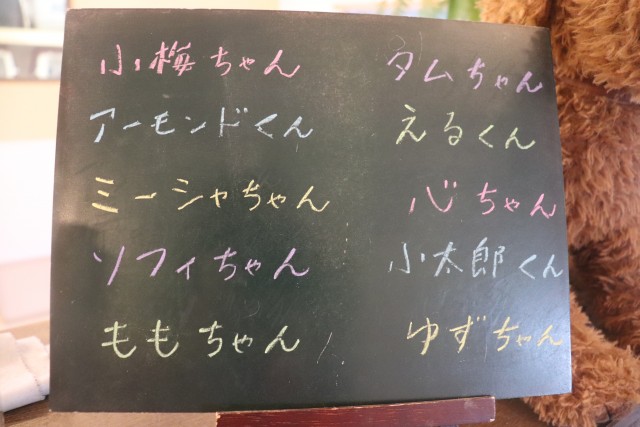 小梅ちゃん
アーモンドくん
ミーシャちゃん
ソフィちゃん
ももちゃん
タムちゃん
えるくん
心ちゃん
小太郎くん
ゆずちゃん